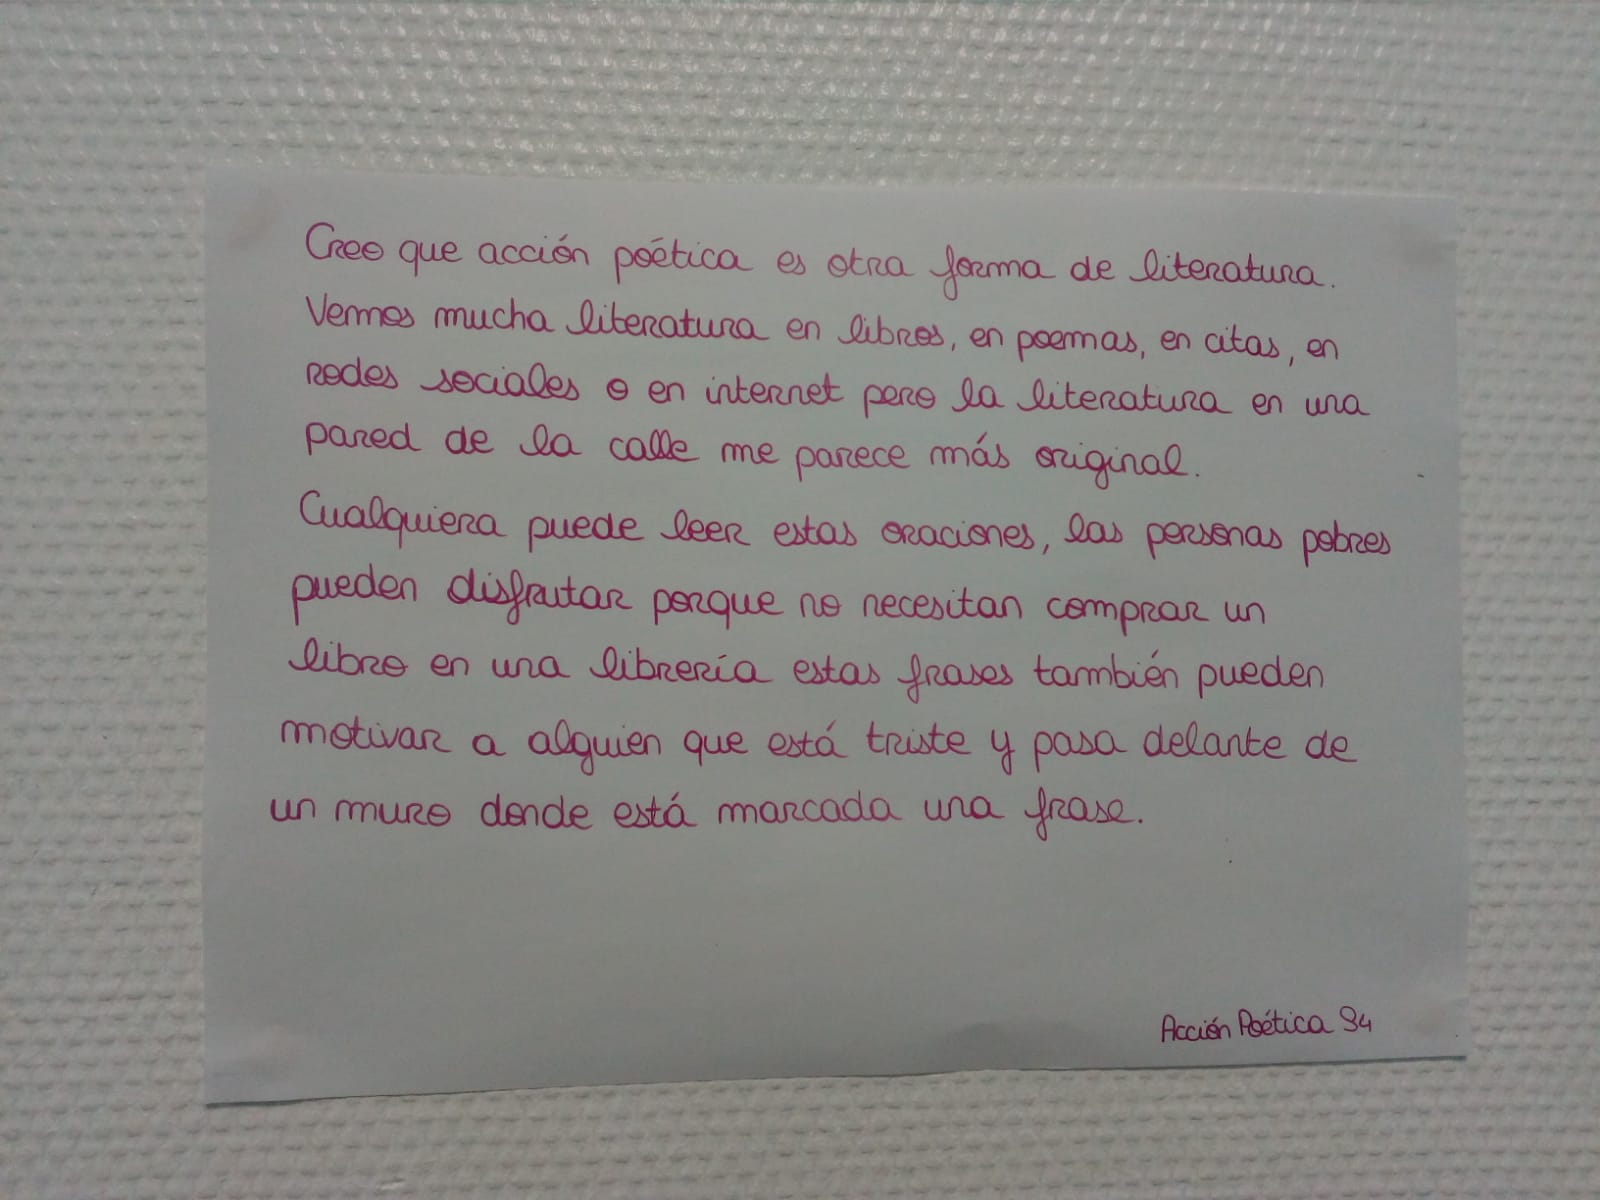 Creo que acción poética es otra forma de literatura.
Vemos mucha literatura en libros, en poemas, en citas, en
redes sociales o en internet pero la literatura en una
pared de la calle me parece más original.
Cualquiera puede leer estas oraciones, las personas pobres
pueden disfrutar porque no necesitan comprar un
libro en una librería estas frases también pueden
motivar a alguien que está triste y pasa delante de
un muro donde está marcada una frase.
Acción Poética 94